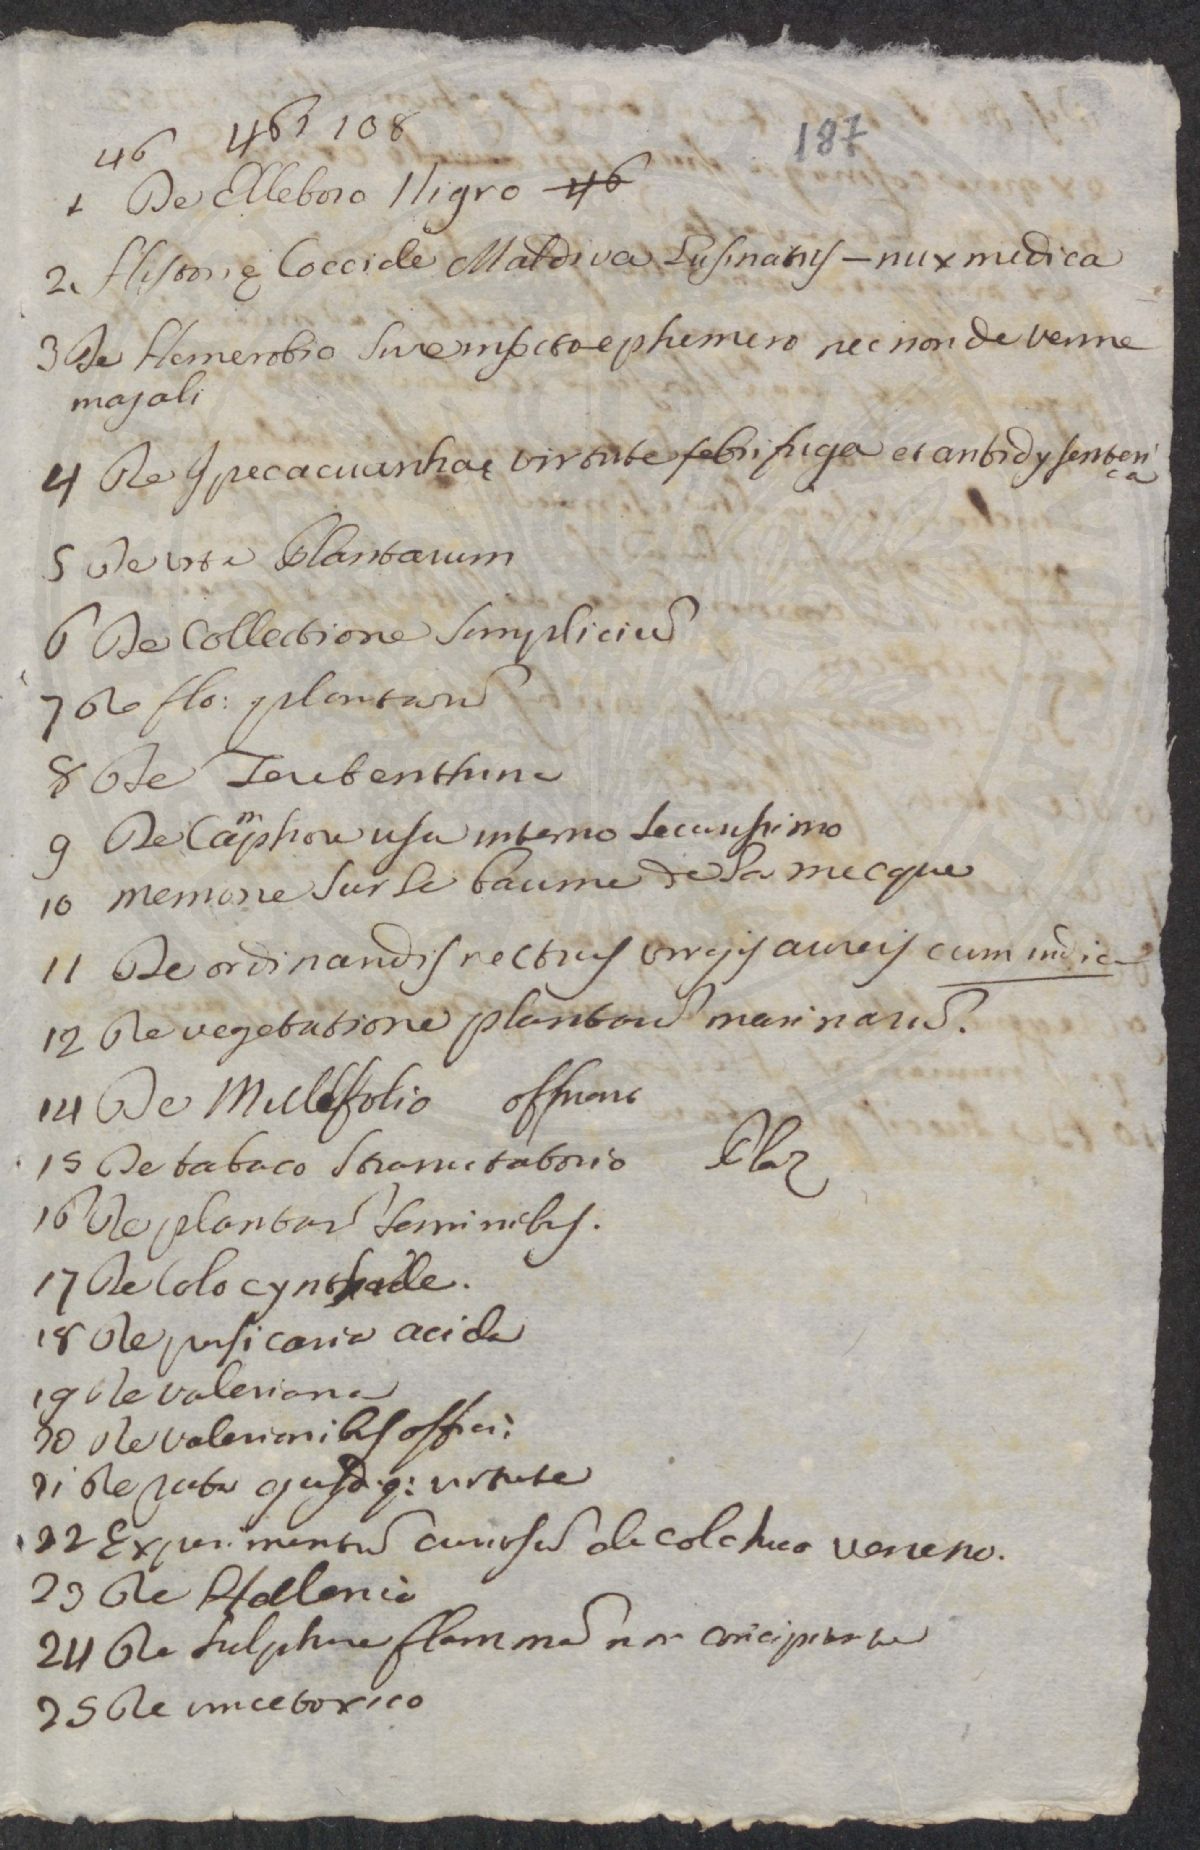 46 463 108
187
1 De Elleboro Nigro 46
2. Historię Coccide Maldiva Lusinatis – nux medica
3 De Hemerobio Sive insecto ephemero nec non de verme
majali
4 De Ipecacuanhaę virtute febrifuga et antidysenteri
ca
5 De vita Plantarum
6 De Collectione simpliciū
7 De flo: plantarū
8 De Terebenthina
9 De Camphora usu interno securissimo
10 memoire sur le baume de la mecque
11 De ordinandis rectius virgis aureis cum indic
12 De vegetatione plantarū marinarū.
14 De Millefolio
15 De tabaco sternutatorio Plaz
16 De plantarū seminibus.
17 De Colocynthide.
18 De persicaria acida
19 De valeriana
20 De valerianibus offici:
21 De ruta ejusdq: virtute
22 Experimentū curiosū de colchico veneno.
23 De Hellenio
24 De Sulphure flammā non concipiente
25 De vincetoxico